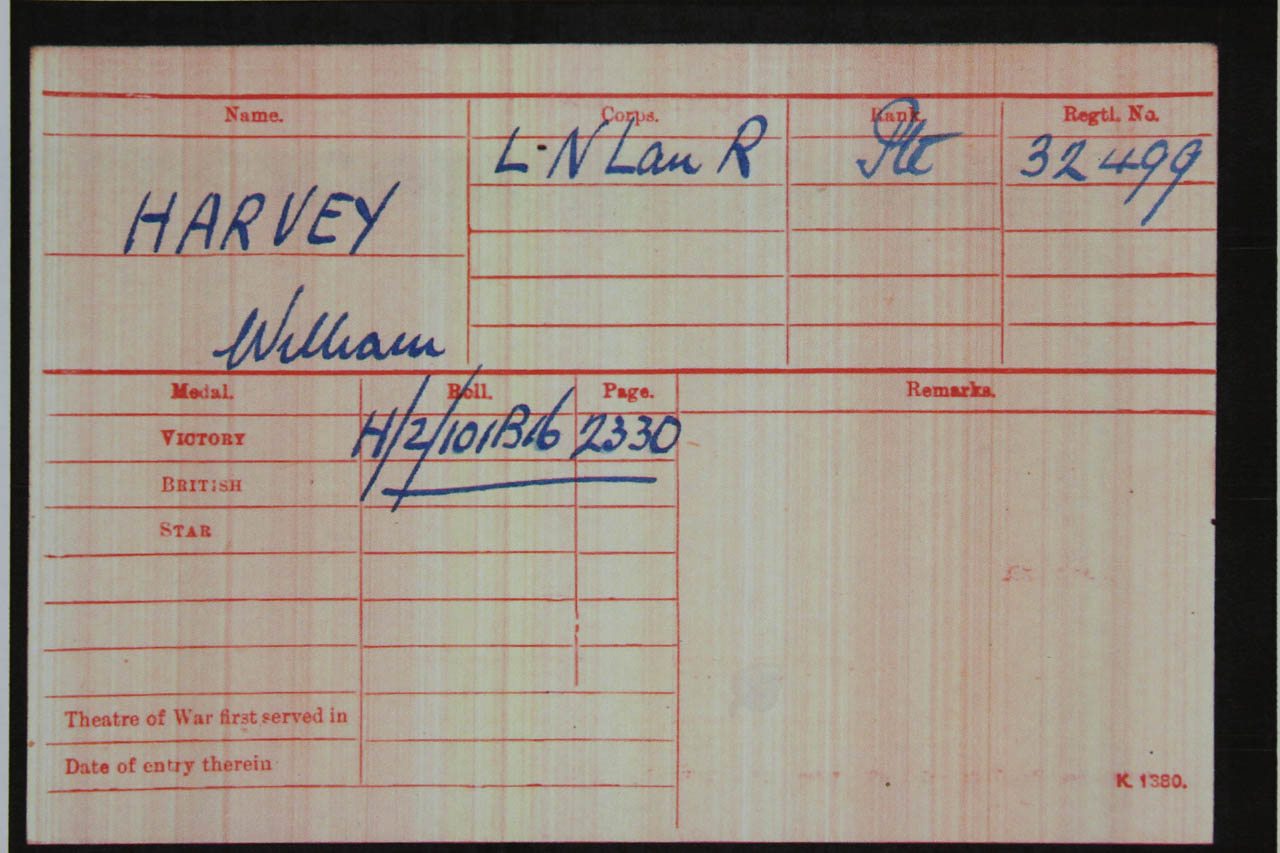 Name. Corps. Rank. Regtl. No.
L·N Lan R Pte 32499
HARVEY
William
Medal. Roll. Page. Remarks.
VICTORY H/2/101B16 2330
BRITISH
STAR
Theatre of War first served in
Date of entry therein
K. 1380.